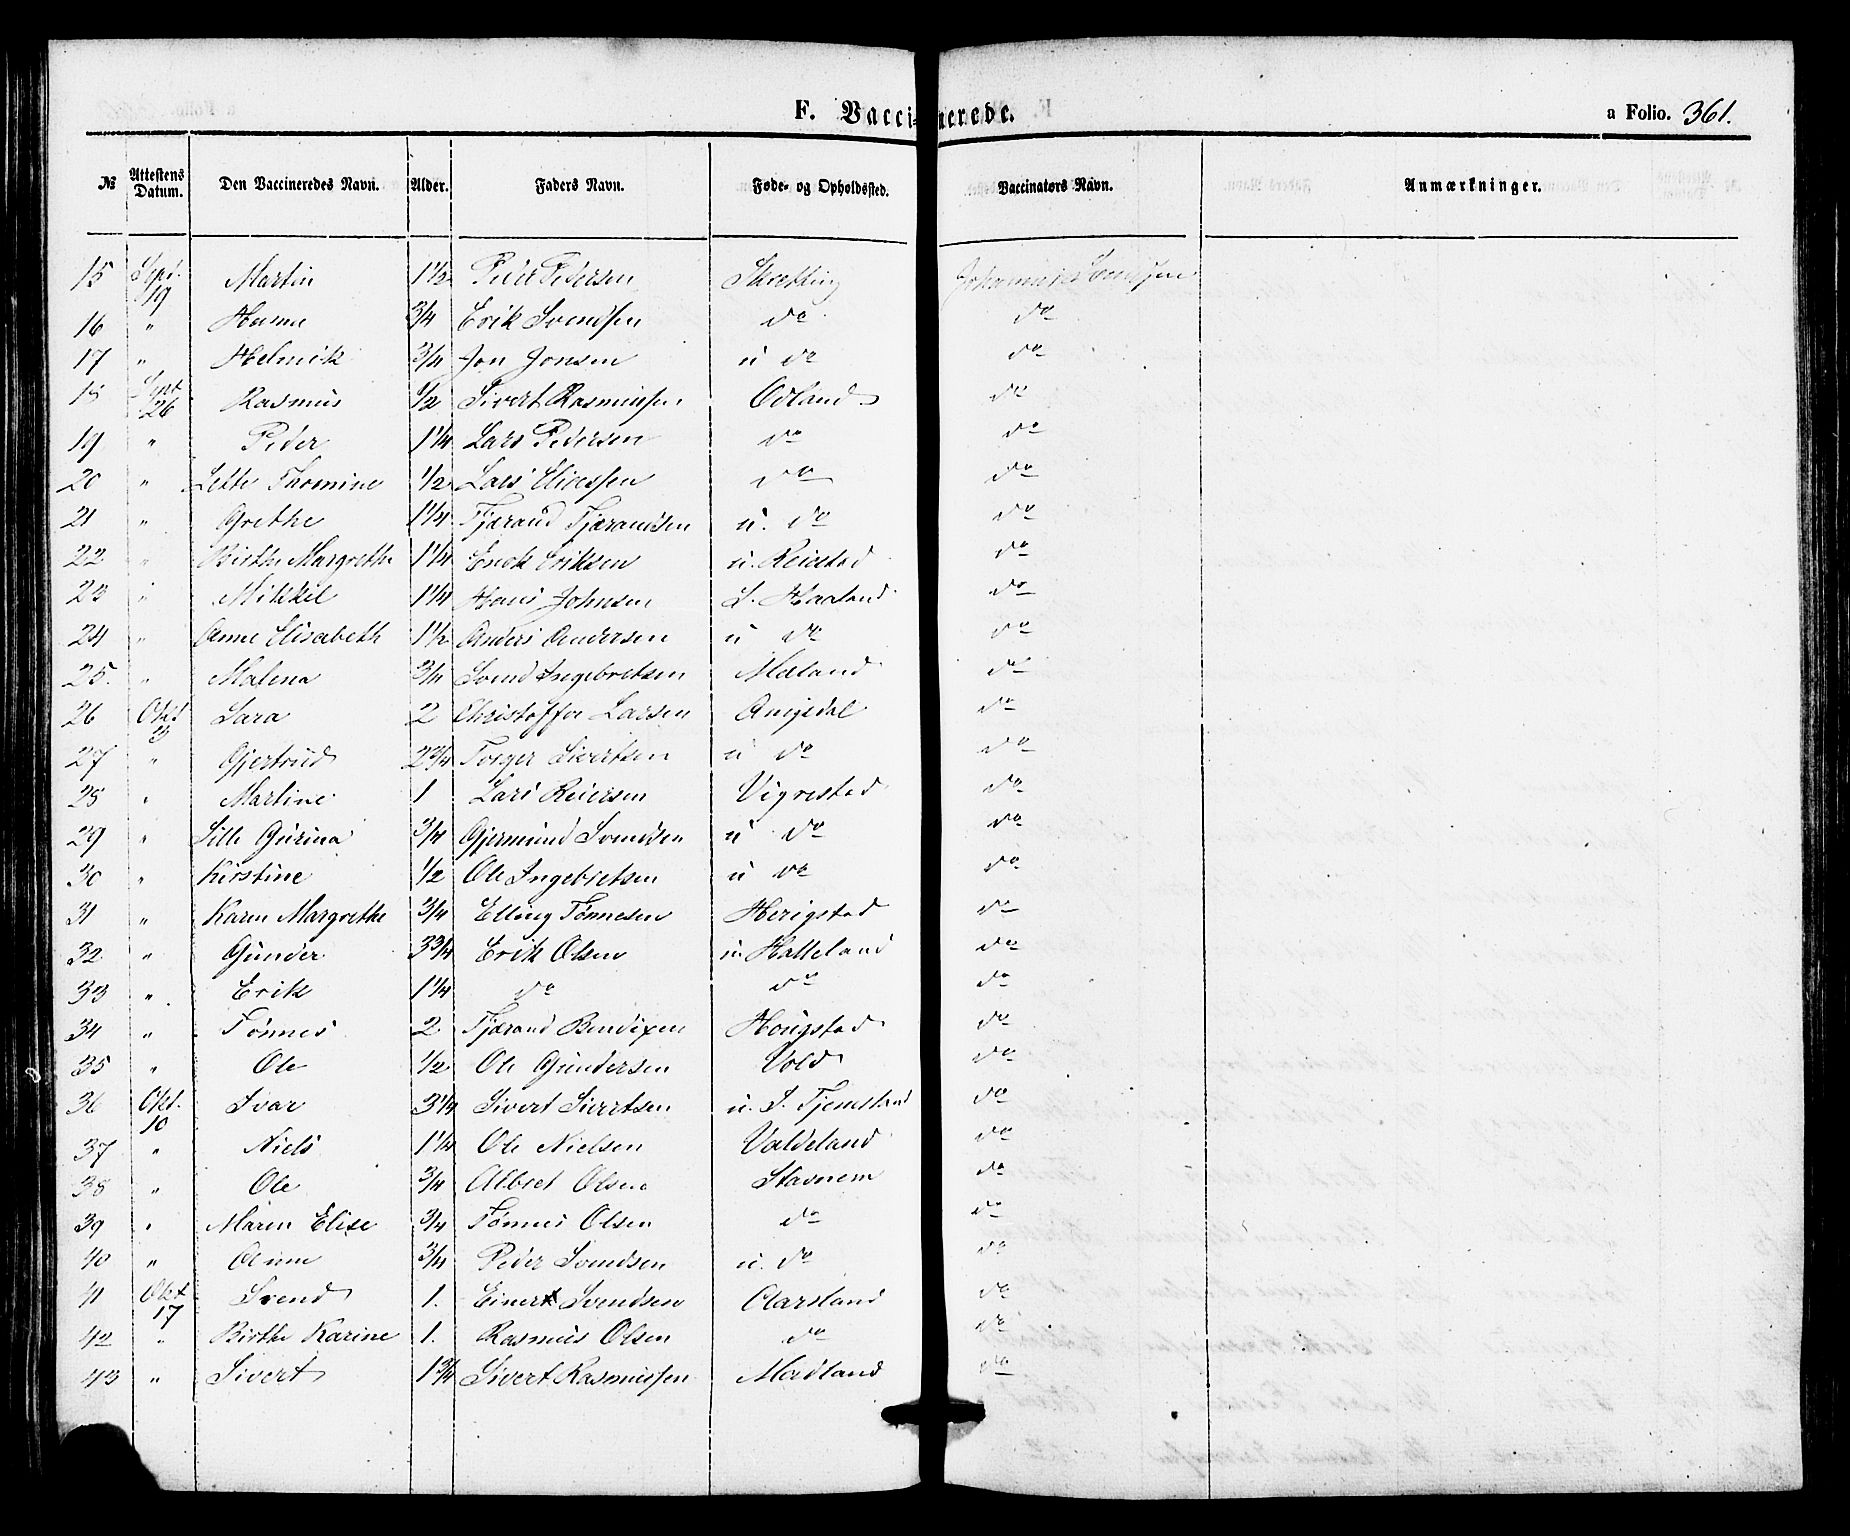 F. Vaccinerede.
a Folio. 361.
№ Attestens Datum. Den Vaccineredes Navn. Alder. Faders Navn. Føde- og Opholdssted. Vaccinators Navn. Anmærkninger.
15 Sept. 19 Martin 1 1/2 Peder Pedersen Skretting
16 " 3/4 Erik Svendsen do do
17 " Helmik 3/4 Jon Jonsen u do do
18 Sept 26 Rasmus 1/2 Sivert Rasmussen Odland do
19 " Peder 1 1/4 Lars Pedersen do do
20 " Thomine 1/2 Lars do do
21 " Grethe 1 1/4 Tjærand Tjærandsen u. do do
22 " Birthe Margrethe 1 1/4 Enok Eriksen u. Reiestad do
23 " Mikkel 1 1/4 Hans Johnsen S. Haaland do
24 " Anne Elisabeth 1 1/2 Anders Andersen u do do
25. " Malena 3/4 Svend Ingebretsen Mæland do
26 Okt 3 Sara 2 Christoffer Larsen do
27 " Gjertrud 2 3/4 Torger Sivertsen u do do
28 " Martine 1 Lars Reiersen Vigrestad do
29 " Sille Gurina 3/4 Gjermund Svendsen u do do
30 " Kirstine 1/2 Ole Ingebretsen u do do
31 " Karen Margrethe 3/4 Elling Tønnesen Herigstad do
32 " Gunder 3 3/4 Erik Olsen u. Hatteland do
33 " Erik 1 1/4 do do do
34 " Tønnes 2 Tjærand Bendixen Hougstad do
35 " Ole 1/2 Ole Gundersen Vold do
36 Okt. 10 Ivar 3 1/4 Sivert Sivertsen u. S. Tjemsland do
37 " Niels 1 1/4 Ole Nielsen Valdeland do
38 " Ole 3/4 Albret Olsen Stavnem do
39 " Maren Elise 3/4 Tønnes Olsen do do
40 " 3/4 Peder Svendsen u. do do
41 Okt 17 Svend 1. Einert Svendsen Aarsland do
42 " Birthe Karine 1. Rasmus Olsen do do
43 " Sivert 1 3/4 Sivert Rasmussen Madland do